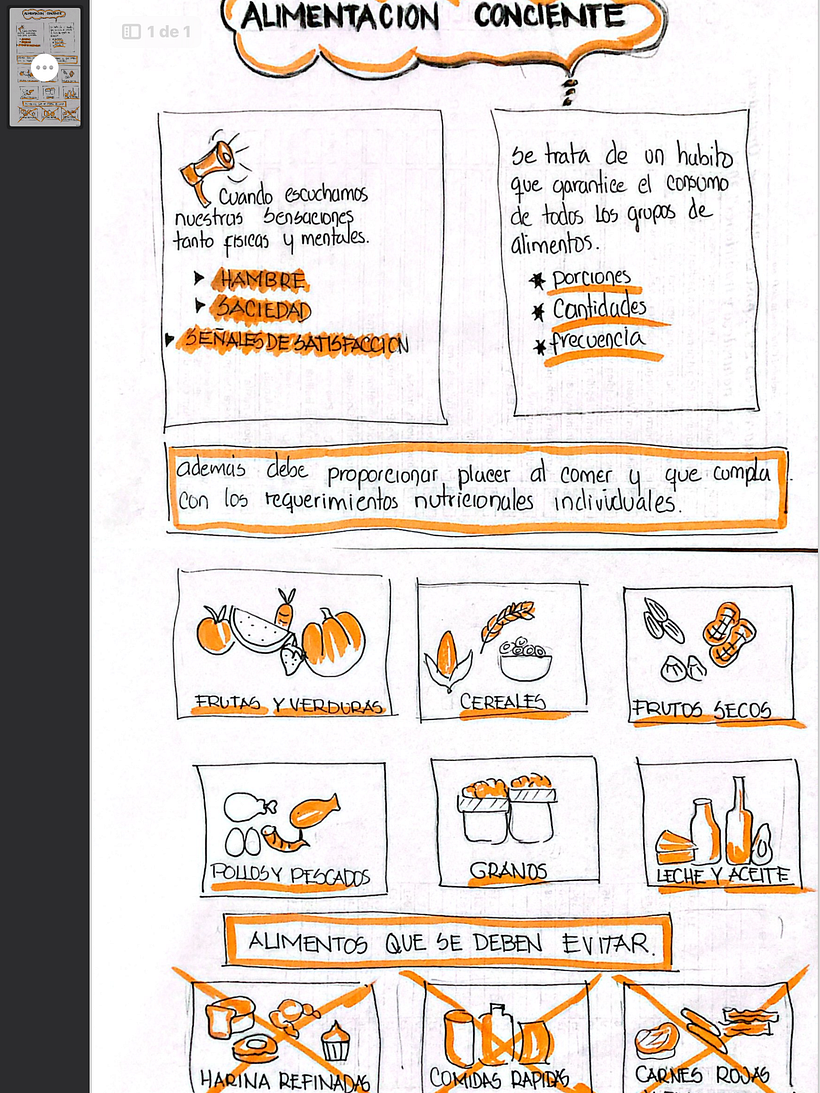 1 de 1
ALIMENTACION CONCIENTE
Cuando escuchamos
nuestras sensaciones
tanto fisicas y mentales.
HAMBRE
SACIEDAD
SEÑALES DE SATISFACCION
Se trata de un habito
que garantice el consumo
de todos los grupos de
alimentos.
porciones
Cantidades
frecuencia
además debe proporcionar placer al comer y que cumpla
con los requerimientos nutricionales individuales.
FRUTAS Y VERDURAS
CEREALES
FRUTOS SECOS
POLLOS Y PESCADOS
GRANOS
LECHE Y ACEITE
ALIMENTOS QUE SE DEBEN EVITAR.
HARINA REFINADAS
COMIDAS RAPIDAS
CARNES ROJAS